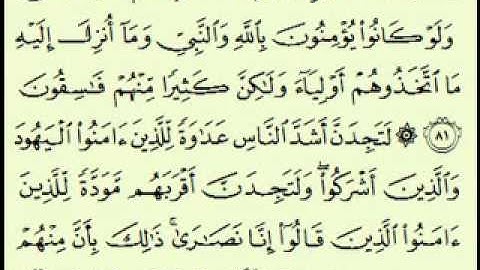 وَلَوْ كَانُوا۟ يُؤْمِنُونَ بِٱللَّهِ وَٱلنَّبِىِّ وَمَآ أُنزِلَ إِلَيْهِ
مَا ٱتَّخَذُوهُمْ أَوْلِيَآءَ وَلَٰكِنَّ كَثِيرًا مِّنْهُمْ فَٰسِقُونَ
٨١ ۞ لَتَجِدَنَّ أَشَدَّ ٱلنَّاسِ عَدَٰوَةً لِّلَّذِينَ ءَامَنُوا۟ ٱلْيَهُودَ
وَٱلَّذِينَ أَشْرَكُوا۟ ۖ وَلَتَجِدَنَّ أَقْرَبَهُم مَّوَدَّةً لِّلَّذِينَ
ءَامَنُوا۟ ٱلَّذِينَ قَالُوٓا۟ إِنَّا نَصَٰرَىٰ ۚ ذَٰلِكَ بِأَنَّ مِنْهُمْ